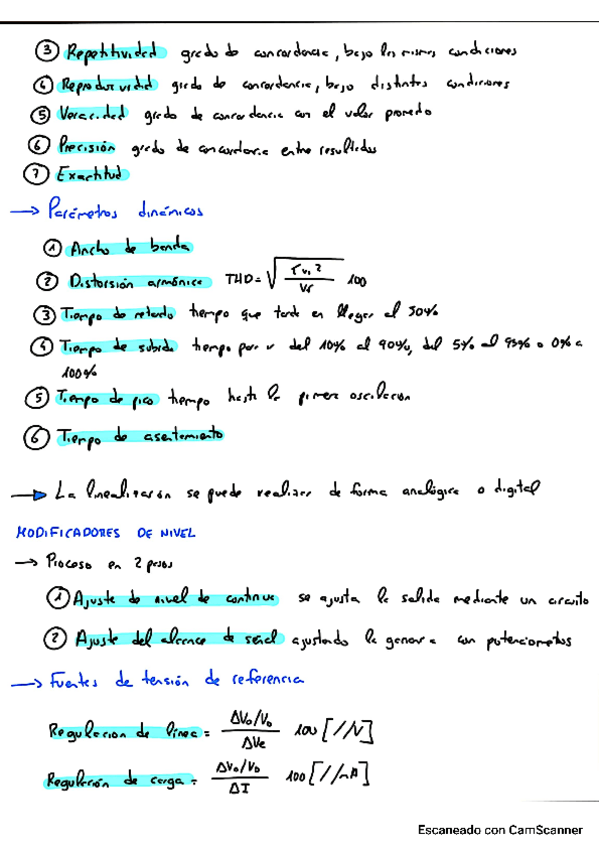 ③ Repetitividad grado de concordancia, bajo las mismas condiciones
④ Reproducividad grado de concordancia, bajo distintas condiciones
⑤ Veracidad grado de concordancia con el valor promedio
⑥ Precisión grado de concordancia entre resultados
⑦ Exactitud
→ Parámetros dinámicos
① Ancho de banda
② Distorsión armónica THD = √(Σv₁²/Vf) 100
③ Tiempo de retardo tiempo que tarda en llegar al 50%
④ Tiempo de subida tiempo para ir del 10% al 90%, del 5% al 95% o 0% a
100%
⑤ Tiempo de pico tiempo hasta la primera oscilación
⑥ Tiempo de asentamiento
→ La linealización se puede realizar de forma analógica o digital
MODIFICADORES DE NIVEL
→ Proceso en 2 pasos
① Ajuste de nivel de continua se ajusta la salida mediante un circuito
② Ajuste del alcance de señal ajustando la ganancia con potenciometros
→ Fuentes de tensión de referencia
Regulacion de línea = ΔV₀/V₀ / ΔVe 100 [%/V]
Regulación de carga = ΔV₀/V₀ / ΔI 100 [%/mA]
Escaneado con CamScanner